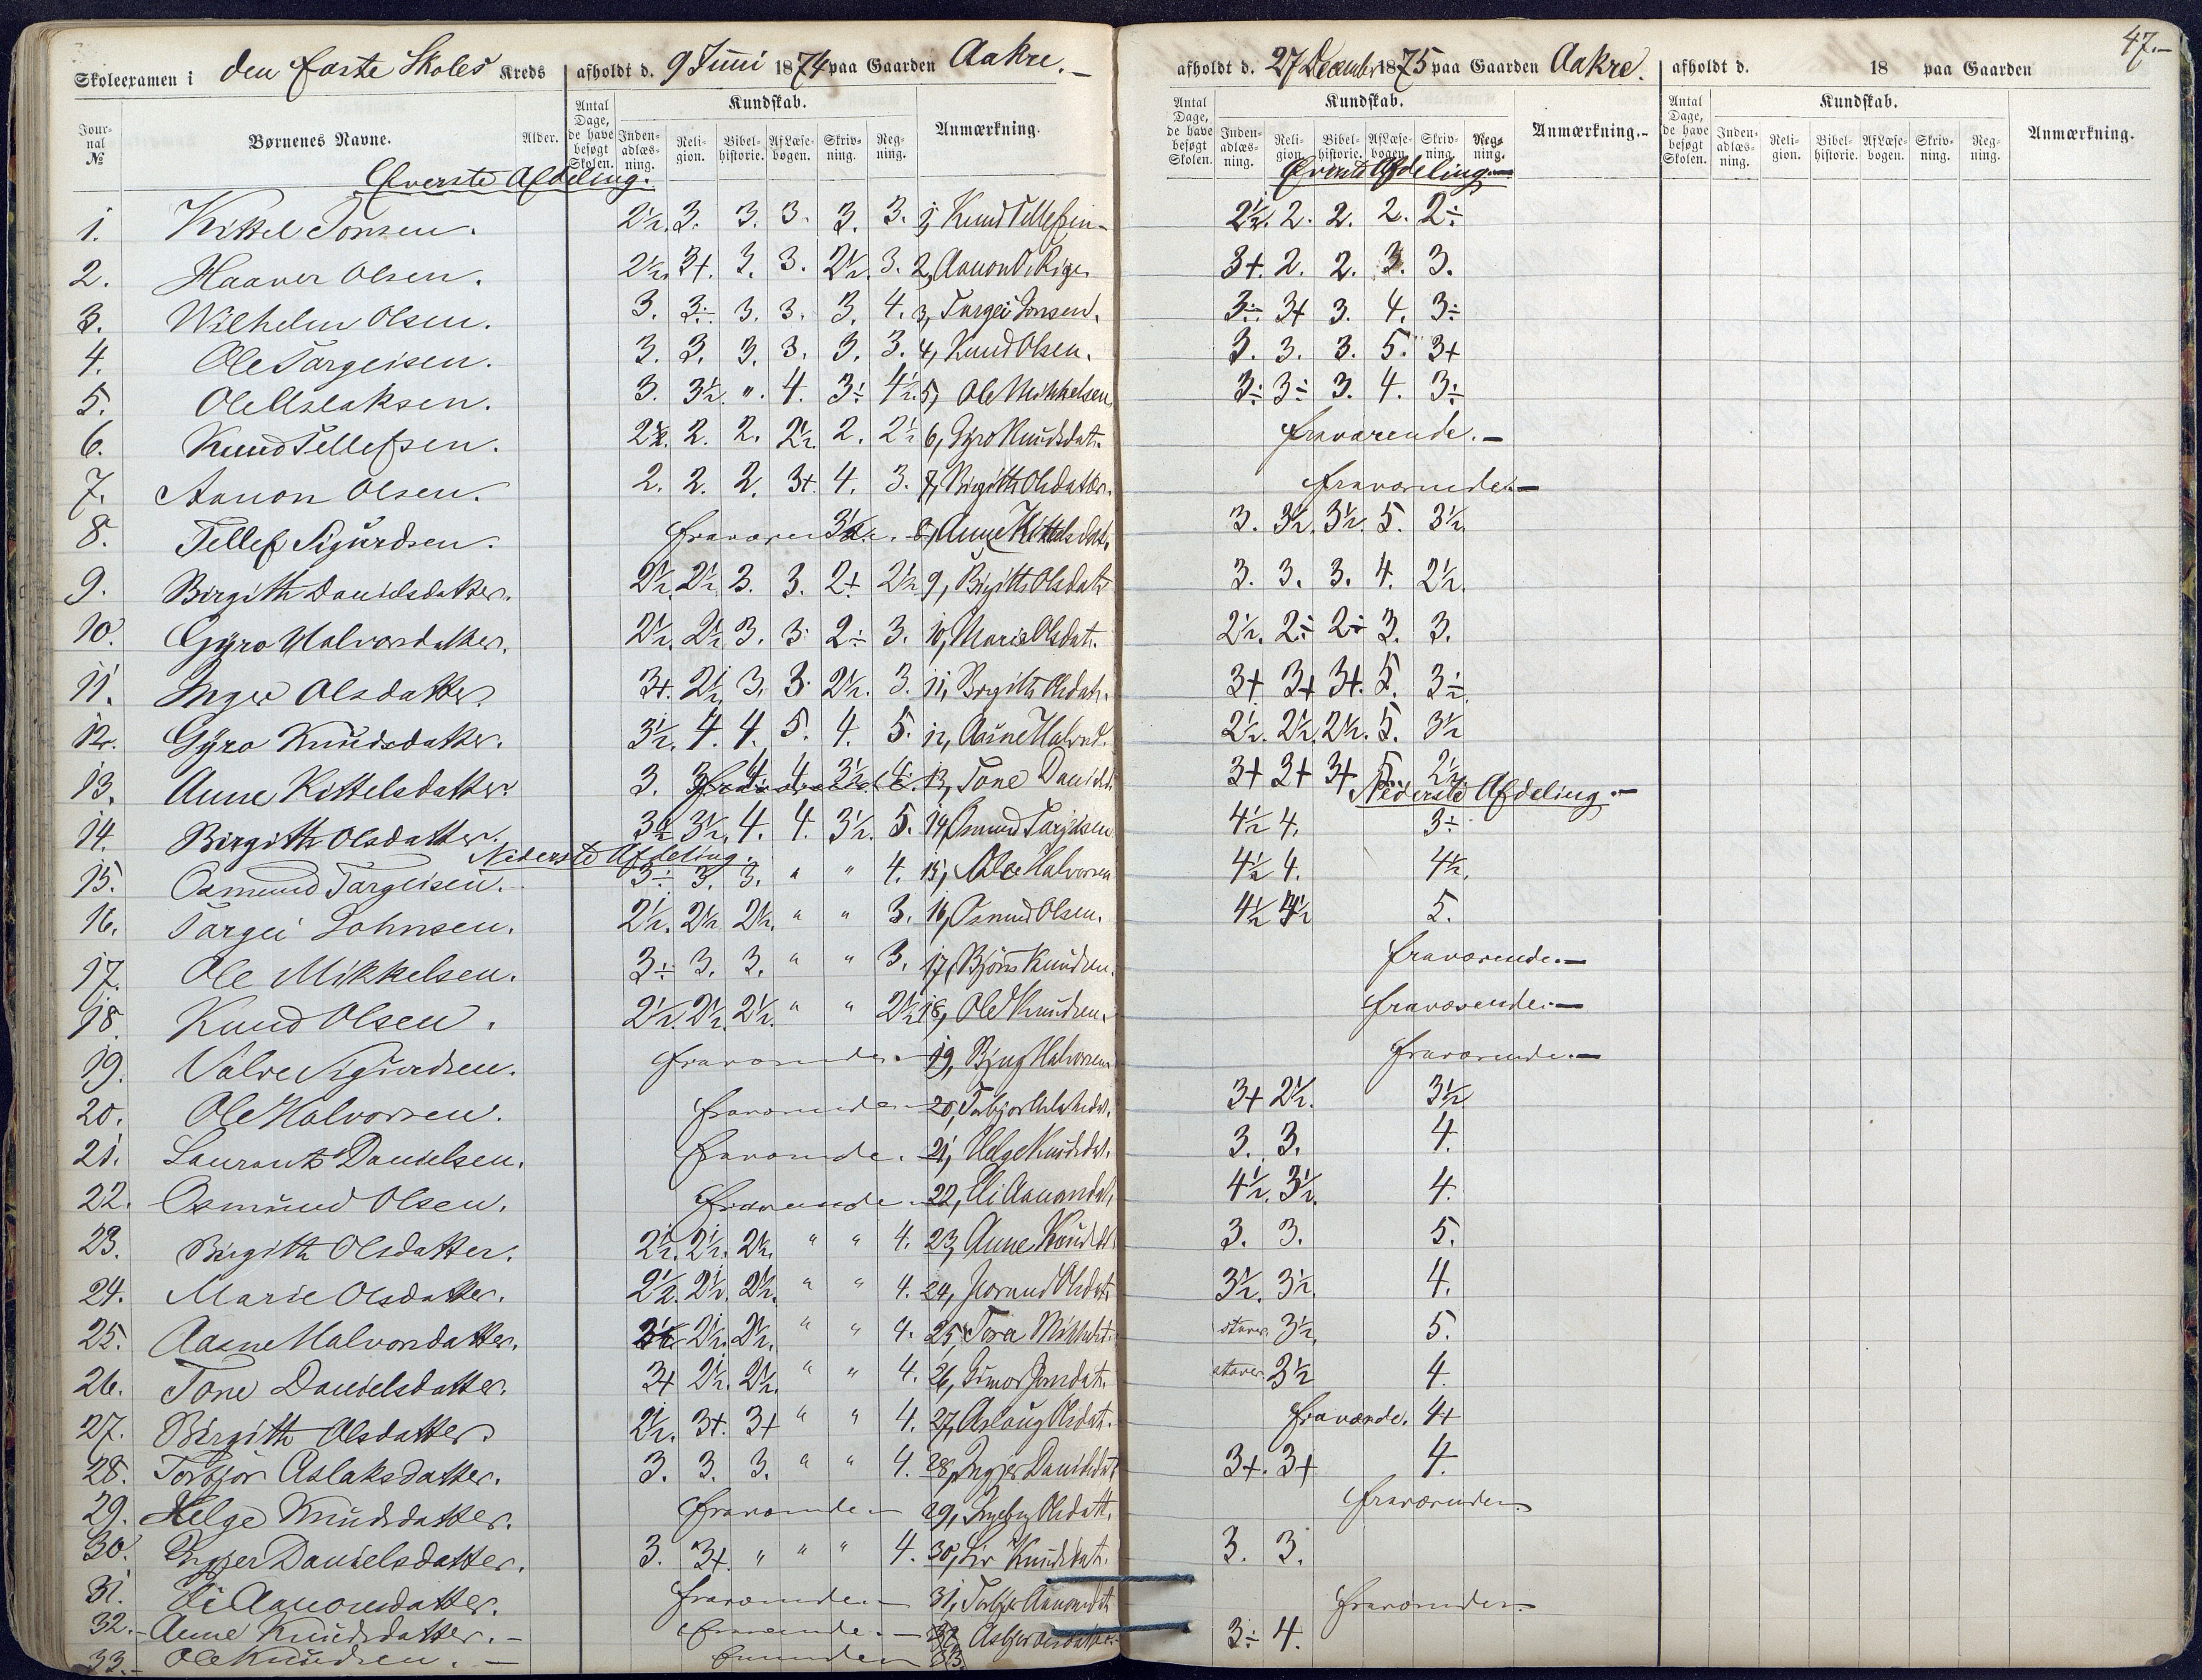 47.-
Skoleexamen i den faste Skoles Kreds afholdt d. 9 Juni 1874 paa Gaarden Aakre.- afholdt d. 27 December 1875 paa Gaarden Aakre. afholdt d. 18 paa Gaarden
Jour-nal № Børnenes Navne. Alder. Antal Dage, de have besøgt Skolen. Kundskab. Inden-adlæs-ning. Reli-gion. Bibel-historie. Af Læse-bogen. Skriv-ning. Reg-ning. Anmærkning. Antal Dage, de have besøgt Skolen. Kundskab. Inden-adlæs-ning. Reli-gion. Bibel-historie. Af Læse-bogen. Skriv-ning. Reg-ning. Anmærkning.- Antal Dage, de have besøgt Skolen. Kundskab. Inden-adlæs-ning. Reli-gion. Bibel-historie. Af Læse-bogen. Skriv-ning. Reg-ning. Anmærkning.
Øverste Afdeling. Øverste Afdeling.-
1. Kittel Jonsen. 2½. 3. 3. 3. 3. 3. 1, Knud Tellefsen- 2½. 2. 2. 2. 2÷
2. Haaver Olsen. 2½. 3+. 3. 3. 2½. 3. 2, Aanon 3+. 2. 2. 3. 3.
3. Wilhelm Olsen. 3. 3÷. 3. 3. 3. 4. 3, Targei Jonsen. 3÷ 3+ 3. 4. 3÷
4. Ole Targeisen. 3. 3. 3. 3. 3. 3. 4, Knud Olsen. 3. 3. 3. 5. 3+
5. Ole Aslaksen. 3. 3½. ". 4. 3÷ 4½. 5, Ole Mikkelsen. 3÷ 3÷ 3. 4. 3÷
6. Knud Tellefsen. 2½. 2. 2. 2½. 2. 2½ 6, Gyro Knudsdat. fraværende.-
7. Aanon Olsen. 2. 2. 2. 3+. 4. 3. 7, Birgith Olsdatter. fraværende.-
8. Tellef Sigurdsen. fraværende. 8, Anne Kittelsdat. 3. 3½. 3½. 5. 3½.
9. Birgith Danielsdatter. 2½. 2½ 3. 3. 2+ 2½ 9, Birgitte Olsdat 3. 3. 3. 4. 2½.
10. Gyro Halvorsdatter. 2½. 2½ 3. 3. 2÷ 3. 10, Marie Olsdat. 2½. 2÷ 2÷ 3. 3.
11. Inger Olsdatter. 3+. 2½ 3. 3. 2½. 3. 11, Birgith Olsdat. 3+ 3+ 3+. 5. 3½
12. Gyro Knudsdatter. 3½. 4. 4. 5. 4. 5. 12, Aasne Halvord. 2½. 2½. 2½. 5. 3½
13. Anne Kittelsdatter. 3. 3. 4. 4. 3½ 4. 13, Tone Danielsd. 3+ 2+ 3+ 5. 2½
Nederste Afdeling.-
14. Birgith Olsdatter. 3½ 3½. 4. 4. 3½. 5. 14, Osmund Targeisen 4½ 4. 3÷
Nederste Afdeling.
15. Osmund Targeisen. 3÷ 3. 3. " " 4. 15, Ole Halvorsen 4½ 4. 4½.
16. Targei Johnsen. 2½. 2½ 2½. " " 3. 16, Osmund Olsen. 4½ 4½ 5.
17. Ole Mikkelsen. 3÷ 3. 3. " " 3. 17, Bjørn Knudsen. fraværende.-
18. Knud Olsen. 2½. 2½. 2½. " " 2½ 18, Ole Knudsen. fraværende.-
19. Salve Sigurdsen. fraværende. 19, Halvorsen fraværende.-
20. Ole Halvorsen. fraværende 20, Torbjør Aslaksdat. 3+ 2½. 3½.
21. Laurants Danielsen. fraværende. 21, Helge Knudsdat. 3. 3. 4.
22. Osmund Olsen. fraværende. 22, Eli Aanonsdat. 4½. 3½. 4.
23. Birgith Olsdatter. 2½. 2½. 2½. " " 4. 23, Anne Knudsd. 3. 3. 5.
24. Marie Olsdatter. 2½. 2½. 2½. " " 4. 24, Jorand Olsdat. 3½. 3½. 4.
25. Aasne Halvorsdatter. 2½ 2½. 2½. " " 4. 25, Tora Mikkelsd. staver. 3½. 5.
26. Tone Danielsdatter. 3+ 2½. 2½. " " 4. 26, Gunvor Jonsdat. staver. 3½ 4.
27. Birgith Olsdatter. 2½. 3+. 3+ " " 4. 27, Aslaug Olsdat. fraværende. 4+
28. Torbjør Aslaksdatter. 3. 3. 3. " " 4. 28, Ingjer Danielsdat 3+. 3+ 4.
29. Helge Knudsdatter. fraværende- 29, Ingeborg Olsdatt. fraværende.
30. Ingjer Danielsdatter. 3. 3+. " " " 4. 30, Siv Knudsdat. 3. 3.
31. Eli Aanonsdatter. fraværende- 31, Torbjør Aanonsdat fraværende.
32.- Anne Knudsdatter.- fraværende.- 32, Asbjør Olsdatter.- 3÷ 4.
33.- Ole Knudsen.- fraværende 33.